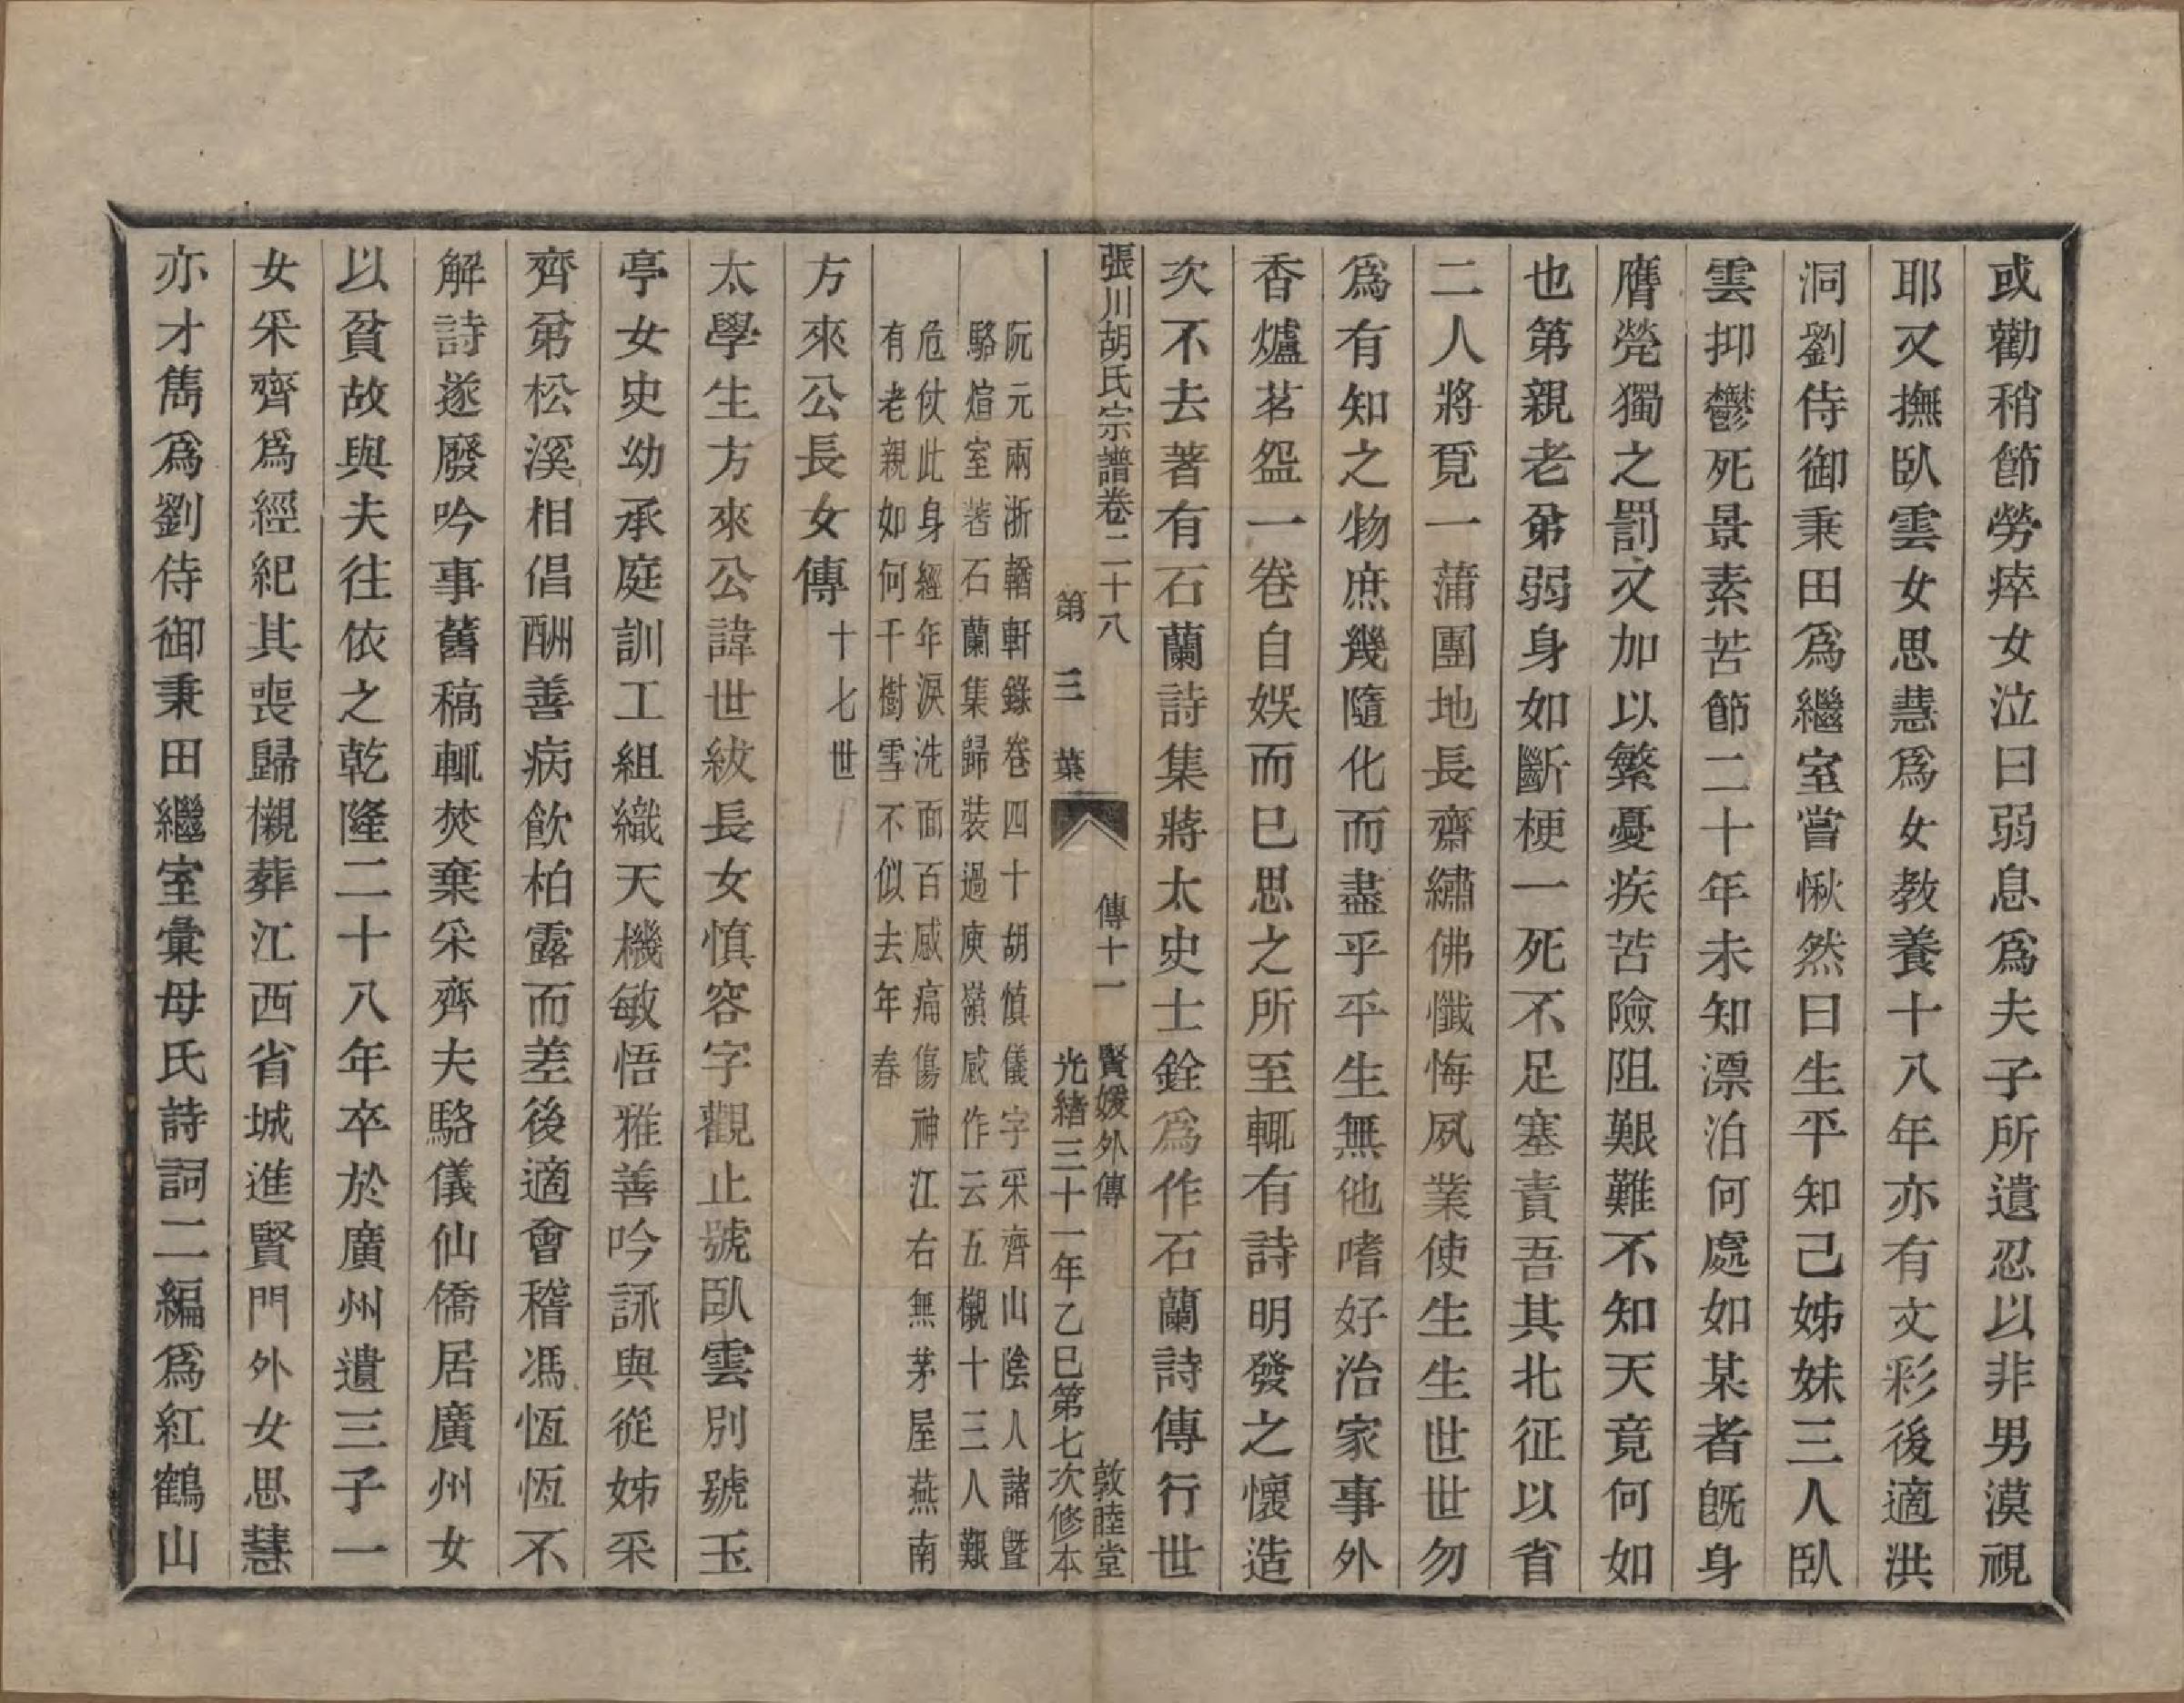 或勸稍節勞瘁女泣曰弱息爲夫子所遺忍以非男漠視
耶又撫臥雲女思慧爲女教養十八年亦有文彩後適洪
洞劉侍御秉田爲繼室嘗愀然曰生平知己姊妹三人臥
雲抑鬱死景素苦節二十年未知漂泊何處如某者旣身
膺煢獨之罰又加以繁憂疾苦險阻艱難不知天竟何如
也第親老弟弱身如斷梗一死不足塞責吾其北征以省
二人將覓一蒲團地長齋繡佛懺悔夙業使生生世世勿
爲有知之物庶幾隨化而盡乎平生無他嗜好治家事外
香爐茗盌一卷自娛而已思之所至輒有詩明發之懷造
次不去著有石蘭詩集蔣太史士銓爲作石蘭詩傳行世
張川胡氏宗譜卷二十八　傳十一　賢媛外傳　敦睦堂
第三葉　光緒三十一年乙巳第七次修本
阮元兩浙輶軒錄卷四十胡慎儀字采齊山陰人諸暨
駱煊室著石蘭集歸裝過庾嶺感作云五櫬十三人艱
危仗此身經年淚洗面百感痛傷神江右無茅屋燕南
有老親如何千樹雪不似去年春
方來公長女傳十七世
太學生方來公諱世紱長女慎容字觀止號臥雲別號玉
亭女史幼承庭訓工組織天機敏悟雅善吟詠與從姊采
齊弟松溪相倡酬善病飲柏露而差後適會稽馮恆恆不
解詩遂廢吟事舊稿輒焚棄采齊夫駱儀仙僑居廣州女
以貧故與夫往依之乾隆二十八年卒於廣州遺三子一
女采齊爲經紀其喪歸櫬葬江西省城進賢門外女思慧
亦才雋爲劉侍御秉田繼室彙母氏詩詞二編爲紅鶴山